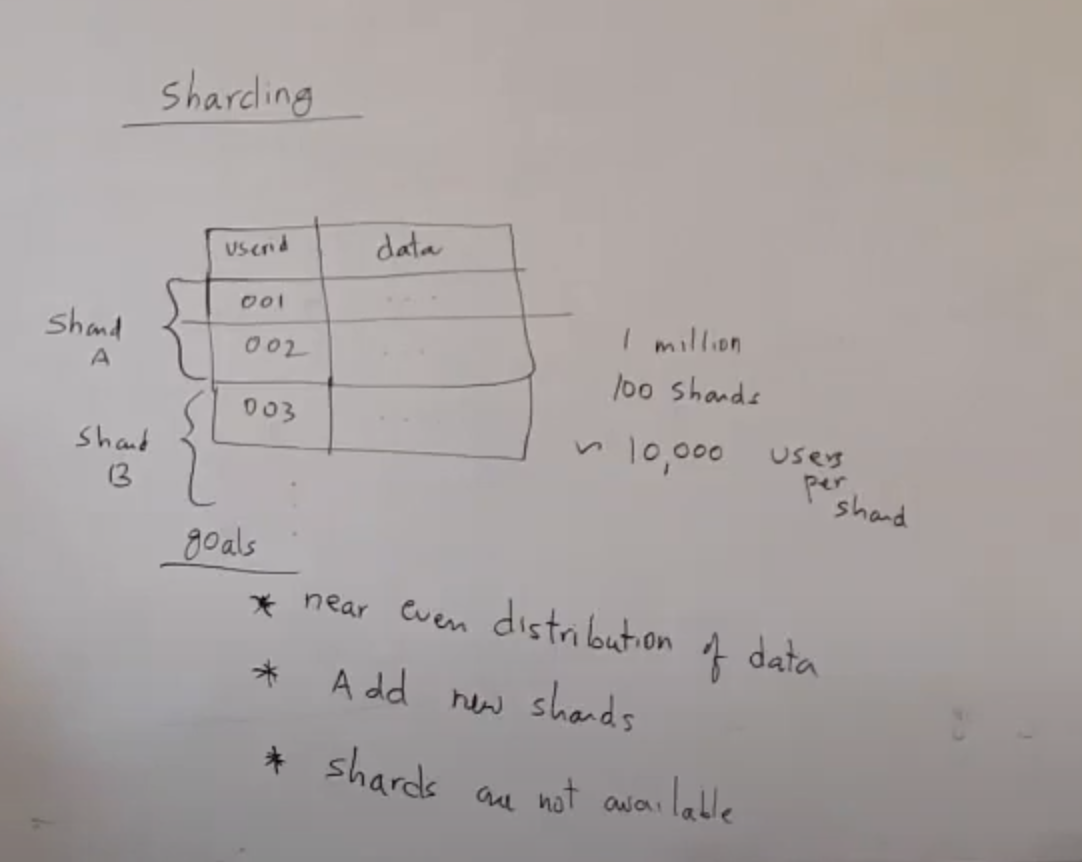 Sharding
userid data
001 ...
Shard
A
002 ...
003 ...
Shard
B
1 million
100 Shards
~ 10,000 users
per
shard
goals
* near even distribution of data
* Add new shards
* shards are not available